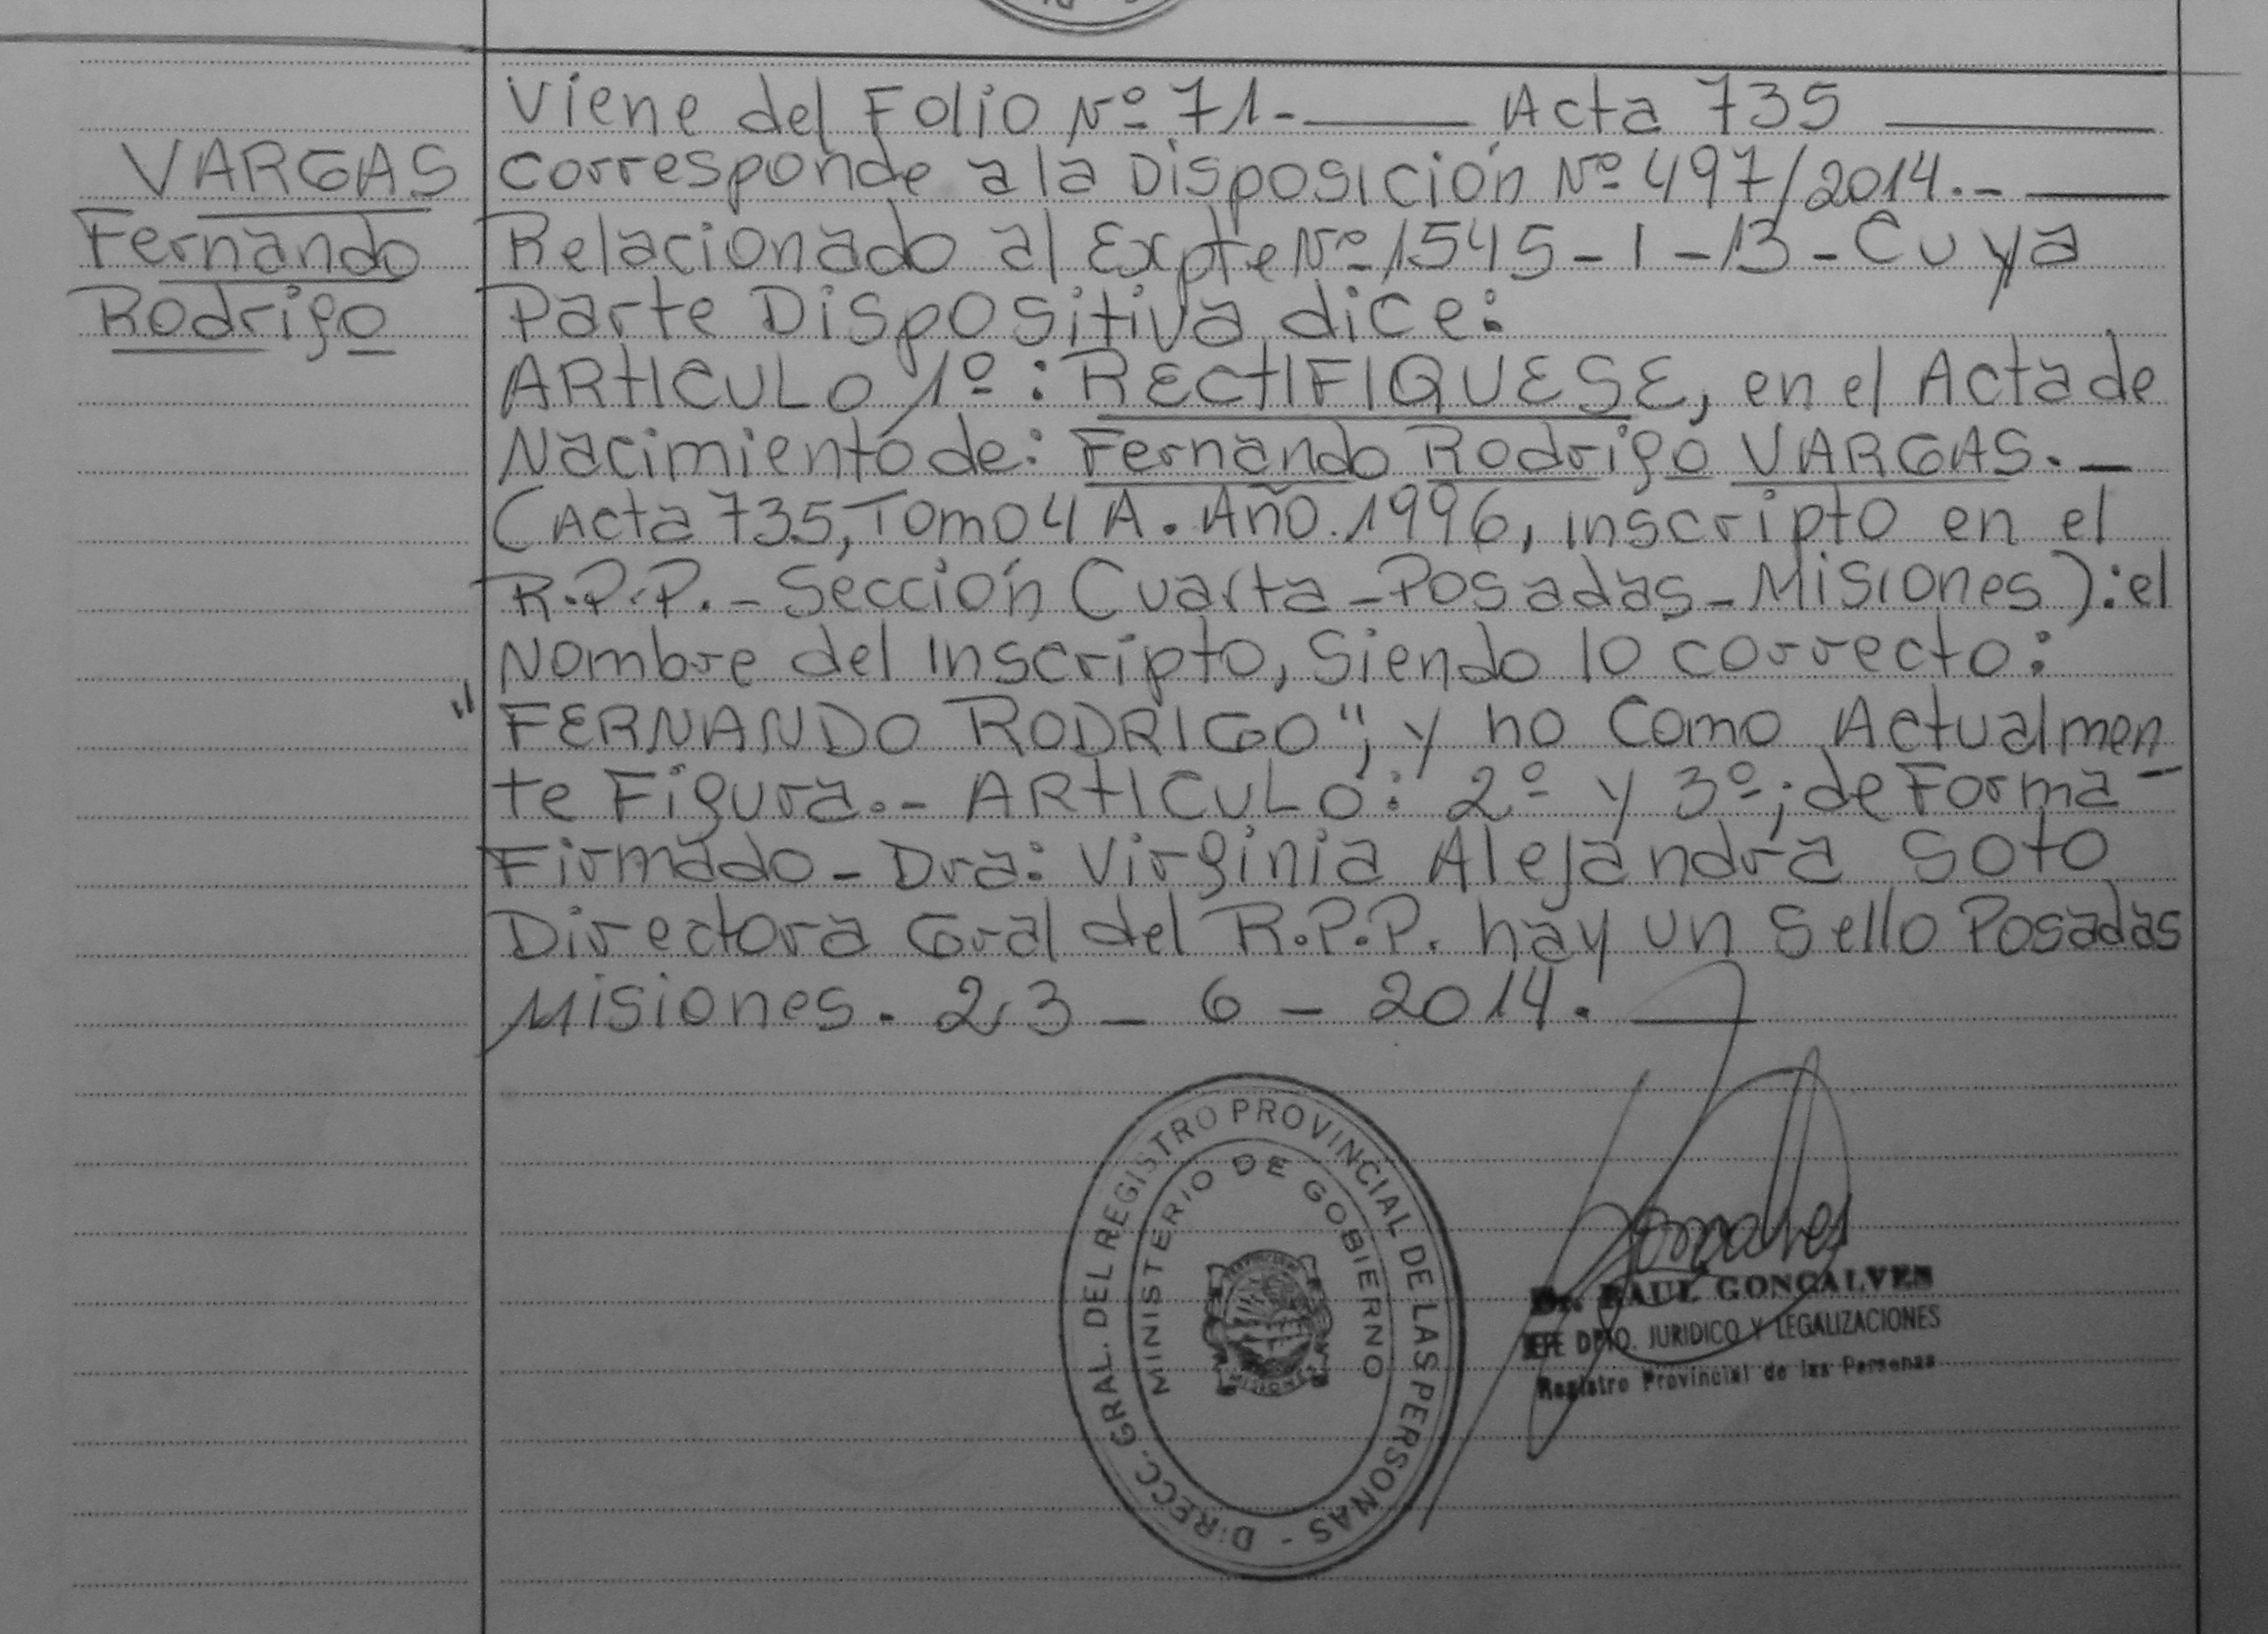 VARGAS
Fernando
Rodrigo
Viene del Folio Nº 71.- Acta 735
Corresponde a la Disposición Nº 497/2014.-
Relacionado al Expte Nº 1545-I-13-Cuya
Parte Dispositiva dice:
ARTICULO 1º: RECTIFIQUESE, en el Acta de
Nacimiento de: Fernando Rodrigo VARGAS.-
(Acta 735, Tomo 4 A. Año. 1996, inscripto en el
R.P.P.-Sección Cuarta-Posadas-Misiones): el
Nombre del inscripto, Siendo lo correcto:
"FERNANDO RODRIGO"; y no Como Actualmen
te Figura.- ARTICULO: 2º y 3º; de Forma-
Firmado-Dra: Virginia Alejandra Soto
Directora Gral del R.P.P. hay un Sello Posadas
Misiones. 23-6-2014.
DIRECC. GRAL. DEL REGISTRO PROVINCIAL DE LAS PERSONAS -
MINISTERIO DE GOBIERNO
MISIONES
Dr. RAUL GONCALVES
JEFE DPTO. JURIDICO Y LEGALIZACIONES
Registro Provincial de las Personas